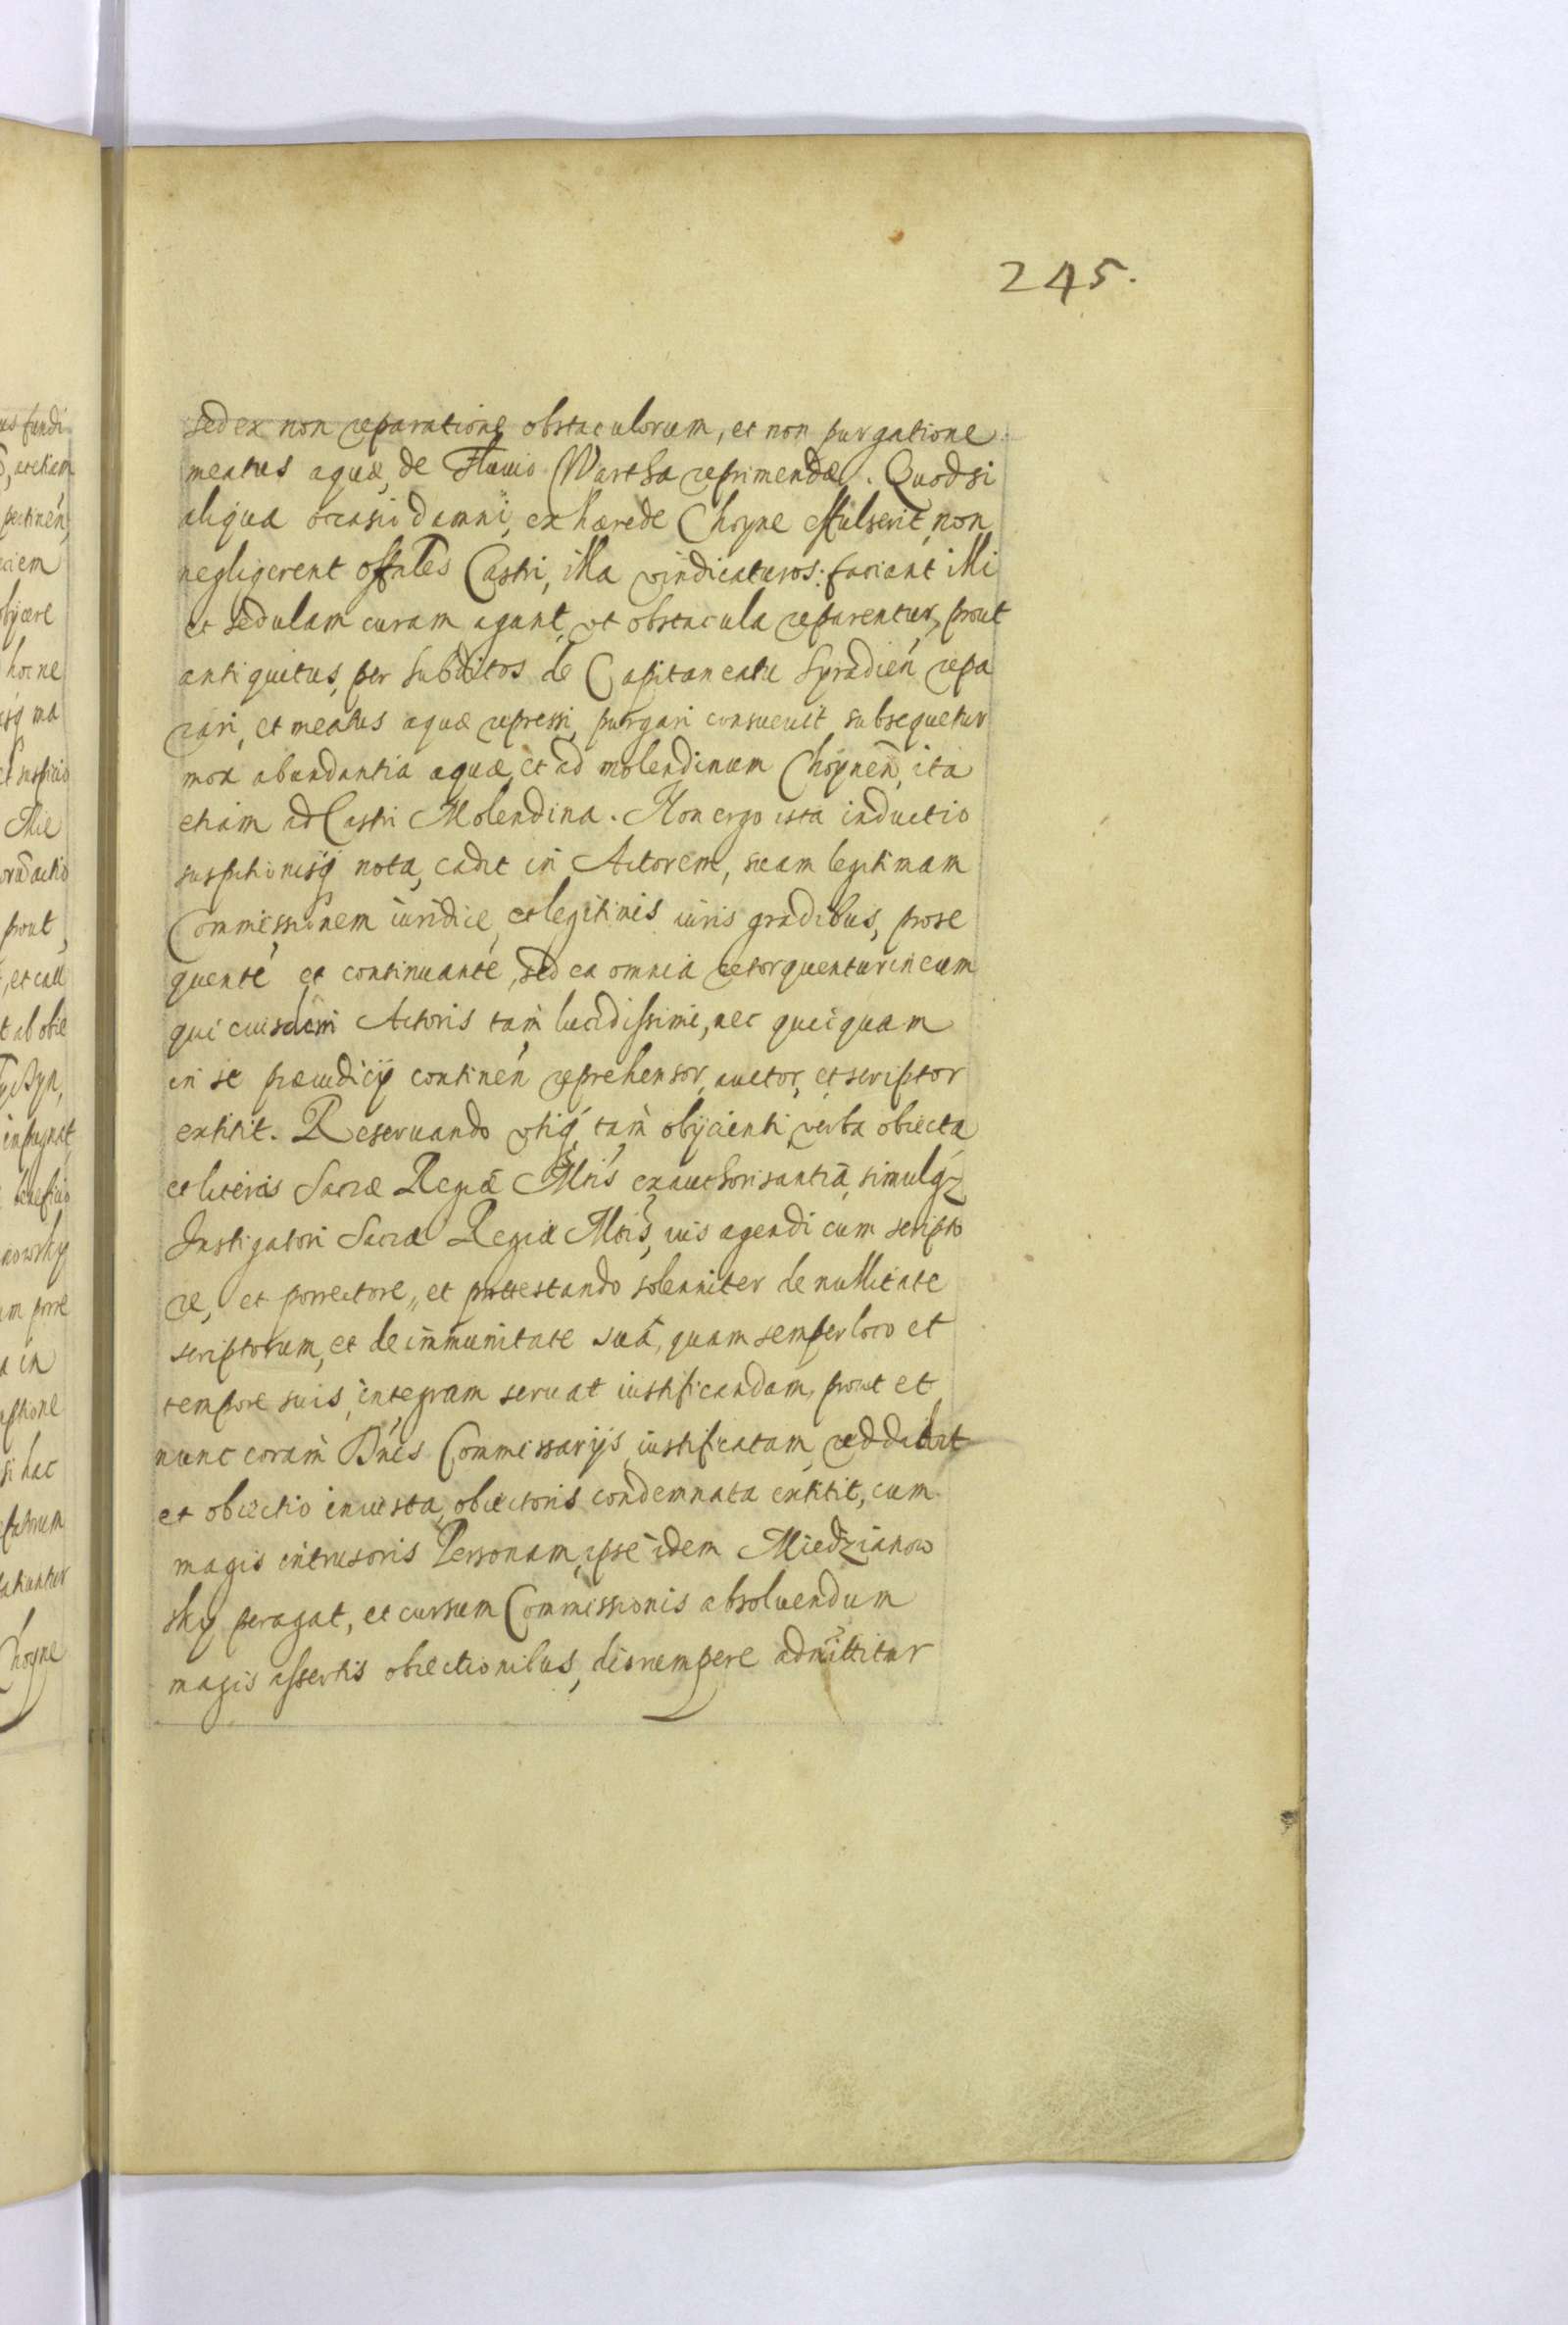 245.
sed ex non reparatione obstaculorum, et non purgatione
meatus aquæ, de Fluuio Wartha reprimendæ. Quodsi
aliqua occasio damni, ex hærede Choyne effulserit, non
negligerent offáles Castri, illa vindicaturos: faciant illi
et sedulam curam agant, vt obstacula reparentur, prout
antiquitus, per subditos de Capitaneatu Syradień repa
rari, et meatus aquæ repressi, purgari consueuit subsequetur
mox abundantia aquæ, et ad molendinum Choyneń, ita
etiam ad Castri Molendina. Non ergo ista inductio
suspitionisq́ nota, cadit in Actorem, suam legitimam
Commissionem iuridice, et legitimis iuris gradibus, prose
quenté et continuanté, sed ea omnia retorquentur in eum
qui eiusdem Actoris tam̀ lucidissime, nec quicquam
in se præiudicy continéń reprehensor, auctor, et scriptor
extitit. Reseruando vtiq́, tam̀ obijcienti, verba obiecta
et literis Sacræ Regiæ Mtis exauthorisantia, simulq́z
Instigatori Sacræ Regiæ Mtis, ius agendi cum scripto
re, et porrectore, et protestando solenniter de nullitate
scriptorum, et de immunitate suâ, quam semper loco et
tempore suis, integram seruat iustificandam, prout et
nunc coram̀ Dńis Commissarijs iustificatam reddebat
et obiectio iniusta, obiectoris condemnata extitit, cum
magis intrusoris Personam, ipse idem Miedzianow
sky peragat, et cursum Commissionis absoluendum
magis assertis obiectionibus, disrumpere adnittitur